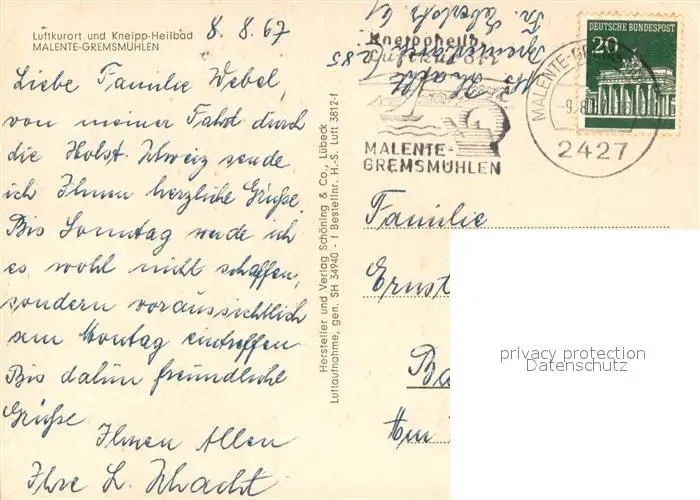 Luftkurort und Kneipp-Heilbad
MALENTE-GREMSMÜHLEN
8. 8. 67
Liebe Familie Webel,
von meiner Fahrt durch
die Holst. Schweiz sende
ich Ihnen herzliche Grüße.
Bis Sonntag werde ich
es wohl nicht schaffen,
sondern voraussichtlich
am Montag eintreffen
Bis dahin freundliche
Grüße
Ihnen Allen
Ihre L. Schacht
Hersteller und Verlag Schöning & Co., Lübeck
Luftaufnahme, gen. SH 34940 - 1 Bestellnr. H.-S. Luft 3812-f
Kneippheilb.
Luftkurort
MALENTE-
GREMSMÜHLEN
DEUTSCHE BUNDESPOST
20
MALENTE-
-9.8.
2427
Familie
Ernst
privacy protection
Datenschutz